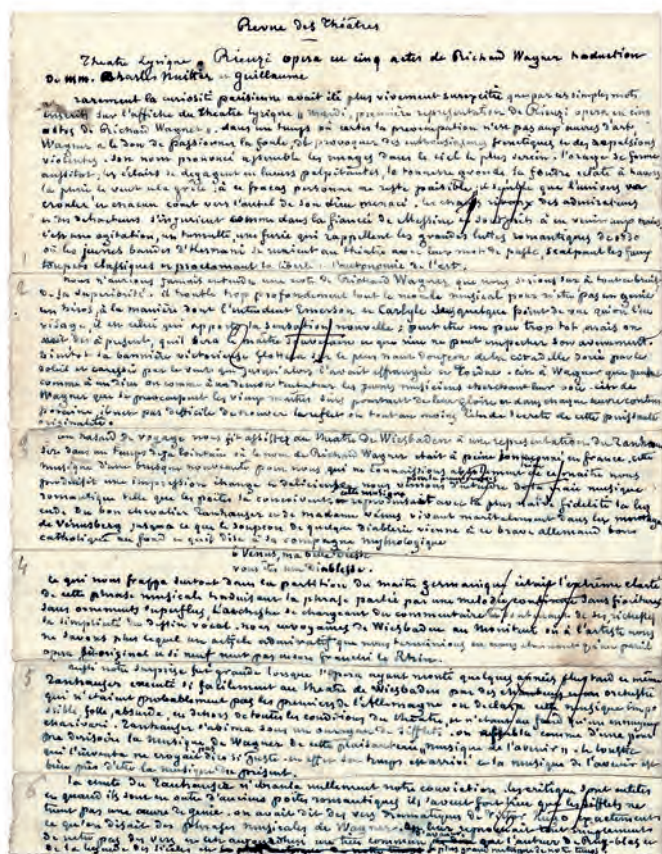 Revue des Théâtres
Theatre Lyrique. Rienzi opera en cinq actes de Richard Wagner traduction
de mm. Charles Nuitter et Guillaume
rarement la curiosité parisienne avait été plus vivement surexcitée que par ces simples mots
inscrits sur l'affiche du theatre lyrique " mardi, première representation de Rienzi opera en cinq
actes de Richard Wagner ". dans un temps où certes la preoccupation n'est pas aux œuvres d'art,
Wagner a le don de passionner la foule, de provoquer des enthousiasmes frenetiques et des repulsions
violentes. son nom prononcé assemble les nuages dans le ciel le plus serein. l'orage se forme
aussitot, les éclairs se degagent en lueurs palpitantes, le tonnerre gronde, la foudre eclate à travers
la pluie le vent et la grêle. à ce fracas personne ne reste paisible, il semble que l'univers va
crouler et chacun court vers l'autel de son dieu menacé. les chœurs rivaux des admirateurs
et des detracteurs s'injurient comme dans la fiancée de Messine et sont prêts à en venir aux mains,
c'est une agitation, un tumulte, une furie qui rappellent les grandes luttes romantiques de 1830
où les jeunes bandes d'Hernani se ruaient au théatre avec leur mot de passe, scalpant les faux
toupets classiques et proclamant la liberté et l'autonomie de l'art.
1
2
nous n'aurions jamais entendu une note de Richard Wagner que nous serions sûr à tout ce bruit
de sa superiorité. il trouble trop profondement tout le monde musical pour n'être pas un génie
un héros, à la manière dont l'entendent Emerson et Carlyle. de quelque point de vue qu'on l'en
visage, il est celui qui apporte la sensation nouvelle ; peut être un peu trop tot mais on
voit dès à present, qu'il sera le maître souverain et que rien ne peut empecher son avenement.
bientot sa bannière victorieuse flottera sur le plus haut donjon de la citadelle dorée par le
soleil et caressée par le vent qui jusqu'alors l'avait effrangée et tordue. c'est à Wagner que pensent
comme à un dieu ou comme à un demon tentateur les jeunes musiciens cherchant leur voie. c'est de
Wagner que se preoccupent les vieux maîtres sûrs pourtant de leur gloire et dans chaque œuvre contem
poraine, il n'est pas difficile de trouver le reflet ou tout au moins l'étude secrète de cette puissante
originalité.
3
un hasard de voyage nous fit assister au theatre de Wiesbaden à une representation du Tannhau
ser dans un temps deja lointain où le nom de Richard Wagner etait à peine soupçonné en france. cette
musique d'une brusque nouveauté pour nous qui ne connaissions absolument rien de ce maître nous
produisit une impression etrange et delicieuse. nous venions d'entendre pour la première fois de la vraie musique
romantique telle que les poëtes la conçoivent. cette musique representait avec la plus naïve fidelité la leg
ende du bon chevalier Tanhauser et de madame Vénus vivant maritalement dans les montagnes
de Vénusberg jusqu'à ce que le soupçon de quelque diablerie vienne à ce brave allemand bon
catholique au fond et qu'il dise à sa compagne mythologique
o Vénus, ma belle déesse
vous êtes une diablesse.
4
ce qui nous frappa surtout dans la partition du maître germanique c'était l'extrême clarté
de cette phrase musicale traduisant la phrase parlée par une melodie continue sans fioritures
sans ornements superflus. l'orchestre se chargeant du commentaire et soutenant de ses richesses
la simplicité du dessin vocal. nous envoyâmes de Wiesbaden au Moniteur ou à l'artiste nous
ne savons plus lequel un article admiratif que nous terminions en nous étonnant qu'un pareil
opera si original et si neuf n'eut pas encore franchi le Rhin.
5
aussi notre surprise fut grande lorsque l'opera ayant monté quelques années plus tard ce même
Tanhauser executé si facilement au theatre de Wiesbaden par des chanteurs et un orchestre
qui n'etaient probablement pas les premiers de l'Allemagne on declara cette musique impo
ssible, folle, absurde, en dehors de toutes les conditions du theatre, et n'etant au fond qu'un ennuyeux
charivari. Tanhauser s'abima sous un ouragan de sifflets. on affubla comme d'une pour
pre derisoire la musique de Wagner de cette plaisanterie " musique de l'avenir ". le loustic
qui l'inventa ne croyait dire si juste. en effet son temps est arrivé et la musique de l'avenir est
bien près d'être la musique du présent.
6
la chute du Tanhauser n'ebranla nullement notre conviction. les critiques sont entêtés
et quand ils sont en outre d'anciens poëtes romantiques ils savent fort bien que les sifflets ne
tuent pas une œuvre de genie. on avait dit des vers dramatiques de Victor Hugo exactement
ce qu'on disait des phrases musicales de Wagner.